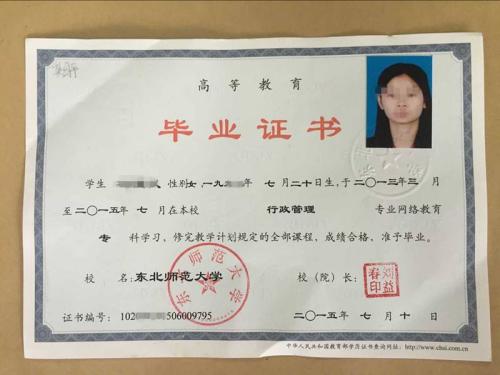 高等教育
毕业证书
学生 性别女 一九 年 七月二十日生，于二〇一三年三月
至二〇一五年七月在本校 行政管理 专业网络教育
专 科学习，修完教学计划规定的全部课程，成绩合格，准予毕业。
校 名：东北师范大学 校（院）长：
刘益春印
东北师范大学
证书编号：102 506009795 二〇一五年七月十日
中华人民共和国教育部学历证书查询网址：http://www.chsi.com.cn